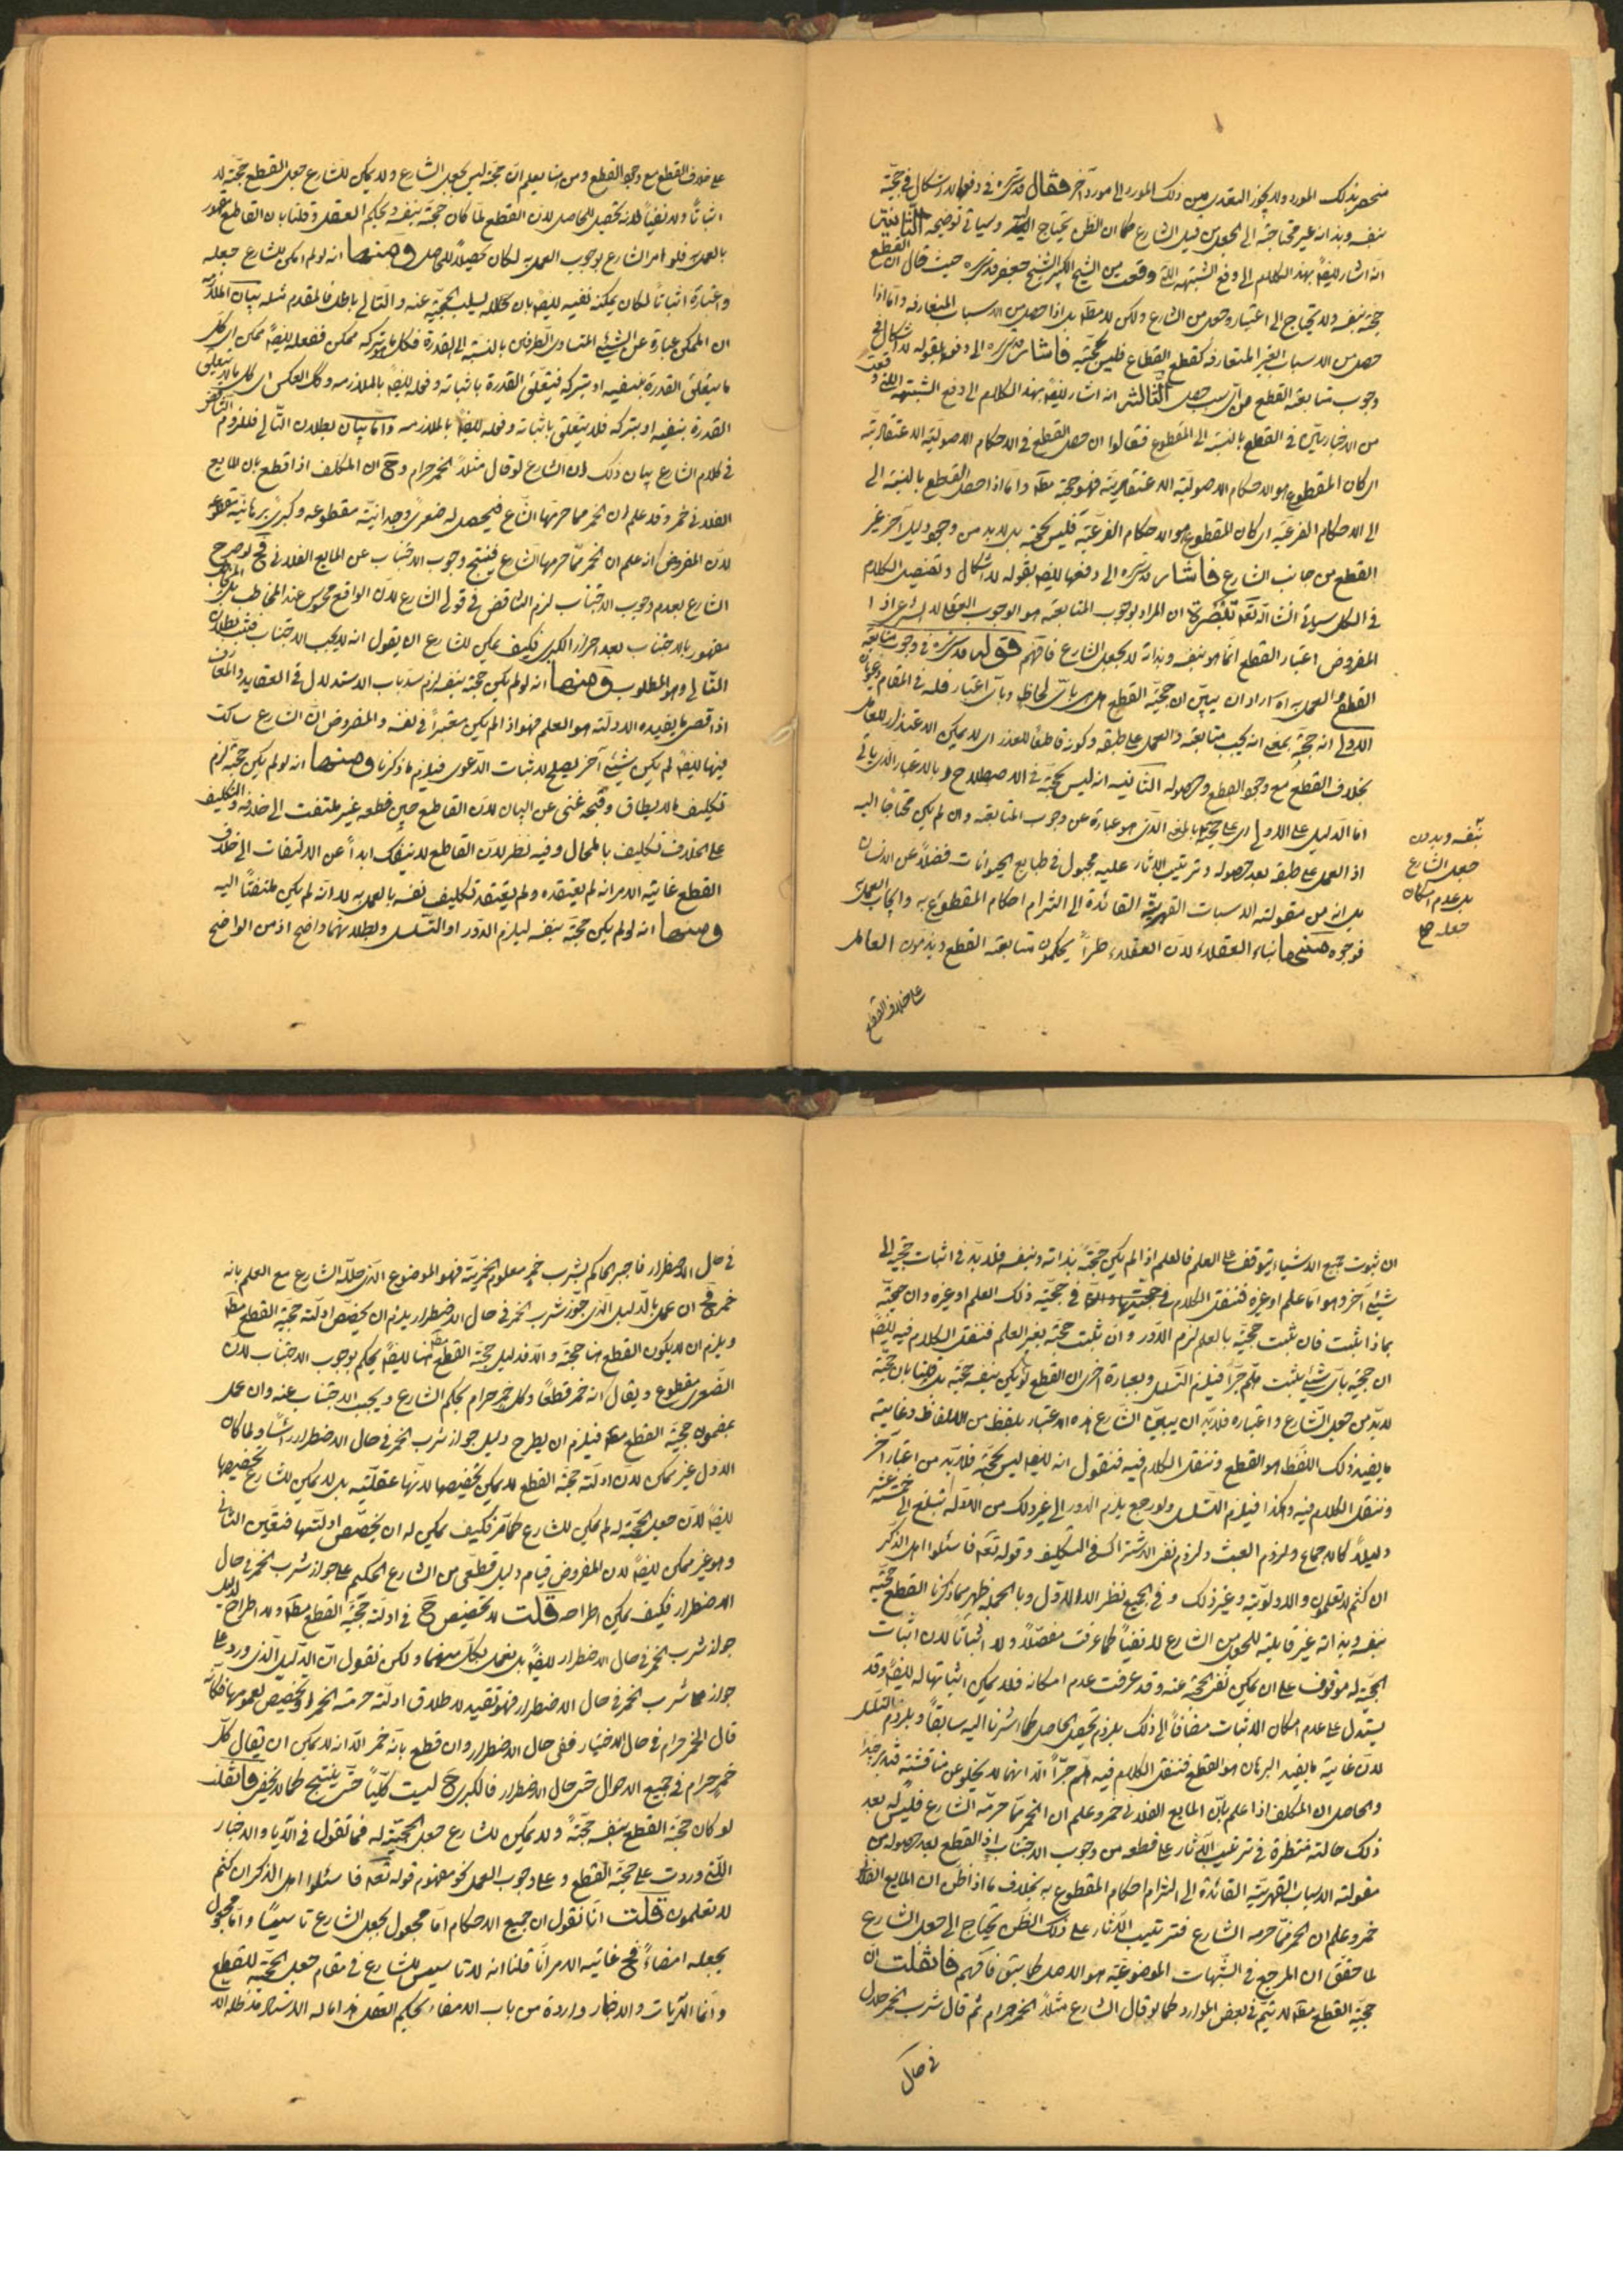 منحصر بذلك المورد ولا يجوز التعدى من ذلك المورد الى مورد آخر فقال قدس سره في دفعها لا اشكال في حجية
بنفسه وبذاته غير محتاجة الى الجعل من قبل الشارع كما ان الظن يحتاج اليه وسيأتي توضيحه الثانية
انه اشار ايضا بهذا الكلام الى دفع الشبهة التي وقعت من الشيخ الكبير الشيخ جعفر قدس سره حيث قال ان القطع
حجة بنفسه ولا يحتاج الى اعتبار وجعل من الشارع ولكن لا مطلقا بل اذا حصل من الاسباب المتعارفة واما اذا
حصل من الاسباب الغير المتعارفة كقطع القطاع فليس بحجة فاشار قدس سره الى دفعها بقوله لا اشكال في
وجوب متابعة القطع من اى سبب حصل الثالث انه اشار ايضا بهذا الكلام الى دفع الشبهة التي وقعت
من الاخباريين في القطع بالنسبة الى المقطوع فقالوا ان حصل القطع في الاحكام الاصولية الاعتقادية
اى كان المقطوع هو الاحكام الاصولية الاعتقادية فهو حجة مطلقا واما اذا حصل القطع بالنسبة الى
الى الاحكام الفرعية اى كان المقطوع هو الاحكام الفرعية فليس بحجة بل لابد من وجود دليل آخر غير
القطع من جانب الشارع فاشار قدس سره الى دفعها ايضا بقوله لا اشكال وتفصيل الكلام
في الكل سيأتي انشاء الله تعالى تبصرة ان المراد بوجوب المتابعة هو الوجوب العقلي لا الشرعي اذ ا
المفروض اعتبار القطع انما هو بنفسه وبذاته لا بجعل الشارع فافهم قوله قدس سره في وجوب متابعة
القطع والعمل به اه اراد ان يبين ان حجية القطع هل هى باى لحاظ وباى اعتبار فله في المقام دعويان
الاولى انه حجة بمعنى انه يجب متابعته والعمل على طبقه وكونه قاطعا للعذر اى لا يمكن الاعتذار للعامل
بخلاف القطع مع وجود القطع وحصوله الثانية انه ليس بحجة في الاصطلاح وبالاعتبار الذى يأتي
اما الدليل على الاولى اى على حجيته بالمعنى الذى هو عبارة عن وجوب المتابعة وان لم يكن محتاجا اليه
اذ العمل على طبقه بعد حصوله وترتيب الاثار عليه مجبول في طبايع الحيوانات فضلا عن الانسان
بل انه من مقولة الاسباب القهرية القائدة الى التزام احكام المقطوع به وايجاب العمل به
فوجوه منها بناء العقلاء لان العقلاء طرا يحكمون بمتابعة القطع ويذمون العامل
على خلاف القطع
بنفسه وبدون
جعل الشارع
بل عدم امكان
جعله صح
على خلاف القطع مع وجود القطع ومن هنا يعلم ان حجيته ليس بجعل الشارع ولا يمكن للشارع جعل القطع حجة لا
اثباتا ولا نفيا لانه تحصيل للحاصل لان القطع لما كان حجة بنفسه وبحكم العقل وقلنا بان القاطع مجبور
بالعمل به فلو امر الشارع بوجوب العمل به لكان تحصيلا للحاصل ومنها انه لو لم امكن للشارع جعله
واعتباره اثباتا لكان يمكنه نفيه ايضا بان كان له يسلب الحجية عنه والتالي باطل فالمقدم مثله بيان الملازمة
ان الممكن عبارة عن الشيء المتساوى الطرفين بالنسبة الى القدرة فكل ما هو تركه ممكن ففعله ايضا ممكن اى كل
ما يتعلق القدرة بنفيه او بتركه فيتعلق القدرة باثباته وفعله ايضا بالملازمة وكك العكس اى كل ما لا يتعلق
القدرة بنفيه او بتركه فلا يتعلق باثباته وفعله ايضا بالملازمة واما بيان بطلان التالي فللزوم التناقض
في كلام الشارع بيان ذلك ان الشارع لو قال مثلا الخمر حرام وح ان المكلف اذا قطع بان المايع
الفلانى خمر وقد علم ان الخمر مما حرمها الشارع فيحصل له صغرى وجدانية مقطوعة وكبرى برهانية مقطوعة
لان المفروض انه علم ان الخمر مما حرمها الشارع فينتج وجوب الاجتناب عن المايع الفلانى فح لو صرح
الشارع بعدم وجوب الاجتناب لزم التناقض في قولى الشارع لان الواقع محبوس عند المخاطب بل المركب
مقهور بالاجتناب بعد احراز الكبرى فكيف يمكن للشارع ان يقول انه لا يجب الاجتناب فثبت بطلان
التالى وهو المطلوب ومنها انه لو لم يكن حجة بنفسه لزم سد باب الاستدلال في العقايد والمعارف
اذ اقصى ما يفيده الادلة هو العلم فهو اذا لم يكن معتبرا في نفسه والمفروض ان الشارع ساكت
فيها ايضا لم يكن شيئ آخر يصلح لاثبات الدعوى فيلزم ما ذكرنا ومنها انه لو لم يكن حجة لزم
تكليف ما لا يطاق وقبحه غنى عن البيان لان القاطع حين قطعه غير ملتفت الى خلافه والتكليف
على الخلاف تكليف بالمحال وفيه نظر لان القاطع لا ينفك ابدا عن الالتفات الى خلاف
القطع غاية الامر انه لم يعتقده ولم يعتقد تكليف نفسه بالعمل به لا انه لم يكن ملتفتا اليه
ومنها انه لو لم يكن حجة بنفسه ليلزم الدور او التسلسل وبطلانهما واضح اذ من الواضح
ان ثبوت جميع الاشياء يتوقف على العلم فالعلم اذا لم يكن حجة بذاته وبنفسه فلابد في اثبات حجيته الى
شيئ آخر وهو اما علم او غيره فننقل الكلام في حجية ذلك العلم او غيره وان حجيته
بماذا يثبت فان ثبت حجيته بالعلم لزم الدور وان ثبت حجيته بغير العلم فننقل الكلام فيه ايضا
ان حجيته باى شيئ يثبت هلم جرا فيلزم التسلسل وبعبارة اخرى ان القطع لو لم يكن بنفسه حجة بل قلنا بان حجيته
لابد من جعل الشارع واعتباره فلابد ان يبين الشارع هذه الاعتبار بلفظ من الالفاظ وغاية
ما يفيد ذلك اللفظ هو القطع وننقل الكلام فيه فنقول انه ايضا ليس بحجة فلابد من اعتبار آخر
وننقل الكلام فيه وهكذا فيلزم التسلسل ولو رجع يلزم الدور الى غير ذلك من الادلة تبلغ الى خمسة عشر
دليلا كالاجماع ولزوم العبث ولزوم نفي الاشتراك في التكليف وقوله تعالى فاسئلوا اهل الذكر
ان كنتم لا تعلمون والاولوية وغير ذلك وفي الجميع نظر الا الاول وبالجملة ظهر مما ذكرنا القطع حجية
بنفسه وبذاته غير قابلة للجعل من الشارع لا نفيا كما عرفت مفصلا ولا اثباتا لان اثبات
الحجية له موقوف على ان يمكن نفي الحجية عنه وقد عرفت عدم امكانه فلا يمكن اثباتها له ايضا وقد
يستدل على عدم امكان الاثبات مضافا الى ذلك بلزوم تحصيل الحاصل كما اشرنا اليه سابقا وبلزوم التسلسل
لان غاية ما يفيد البرهان هو القطع فننقل الكلام فيه هلم جرا الا انهما لا يخلو عن مناقشة فتدبر جيدا
والحاصل ان المكلف اذا علم بان المايع الفلانى خمر وعلم ان الخمر مما حرمه الشارع فليس له بعد
ذلك حالة منتظرة في ترتيب الآثار على قطعه من وجوب الاجتناب اذ القطع بعد حصوله من
مقولة الاسباب القهرية القائدة الى التزام احكام المقطوع به بخلاف ما اذا ظن ان المايع الفلانى
خمر وعلم ان الخمر مما حرمه الشارع فترتيب الآثار على ذلك الظن يحتاج الى جعل الشارع
لما حقق ان المرجع في الشبهات الموضوعية هو الاصل كما سبق فافهم فان قلت ان
حجية القطع مطلقا لا يتم في بعض الموارد كما لو قال الشارع مثلا الخمر حرام ثم قال شرب الخمر حلال
في حال
في حال الاضطرار فاجبر الحاكم بشرب خمر معلوم الخمرية فهو الموضوع الذى حلله الشارع مع العلم بانه
خمر فح ان عمل بالدليل الذى جوز شرب الخمر في حال الاضطرار يلزم ان يخصص ادلة حجية القطع مطلقا
ويلزم ان لا يكون القطع هنا حجة والا فدليل حجية القطع مطلقا هنا ايضا يحكم بوجوب الاجتناب لان
الصغرى مقطوع ويقال انه خمر قطعا وكل خمر حرام بحكم الشارع ويجب الاجتناب عنه وان عمل
بمضمون حجية القطع مطلقا فيلزم ان يطرح دليل جواز شرب الخمر في حال الاضطرار رأسا ولما كان
الاول غير ممكن لان ادلة حجية القطع لا يمكن تخصيصها لانها عقلية بل لا يمكن للشارع تخصيصها
ايضا لان جعل الحجية له لم يمكن للشارع كما مر فكيف يمكن له ان يخصص ادلتها فتعين الثانى
وهو غير ممكن ايضا لان المفروض قيام دليل قطعى من الشارع الحكيم على جواز شرب الخمر في حال
الاضطرار فكيف يمكن اطراحه قلت لا تخصيص ح في ادلة حجية القطع مطلقا ولا اطراح لدليل
جواز شرب الخمر في حال الاضطرار ايضا بل نعمل بكل منهما ولكن نقول ان الدليل الذى ورد على
جواز شرب الخمر في حال الاضطرار فهو تقييد لاطلاق ادلة حرمة الخمر او تخصيص لعمومها فكانه
قال الخمر حرام في حال الاختيار ففى حال الاضطرار وان قطع بانه خمر الا انه لا يمكن ان يقال كل
خمر حرام في جميع الاحوال حتى حال الاضطرار فالكبرى ح ليست كليا حتى ينتج كما لا يخفى فان قلت
لو كان حجية القطع بنفسه حجة ولا يمكن للشارع جعل الحجية له فما تقول في الآيات والاخبار
اللتى وردت على حجية القطع وعلى وجوب العمل نحو مفهوم قوله تعالى فاسئلوا اهل الذكر ان كنتم
لا تعلمون قلت انا نقول ان جميع الاحكام اما مجعول بجعل الشارع تاسيسا واما مجعول
بجعله امضاء فح غاية الامر انا قلنا انه لا تاسيس للشارع في مقام جعل الحجية للقطع
وانما الآيات والاخبار واردة من باب الامضاء لحكم العقل